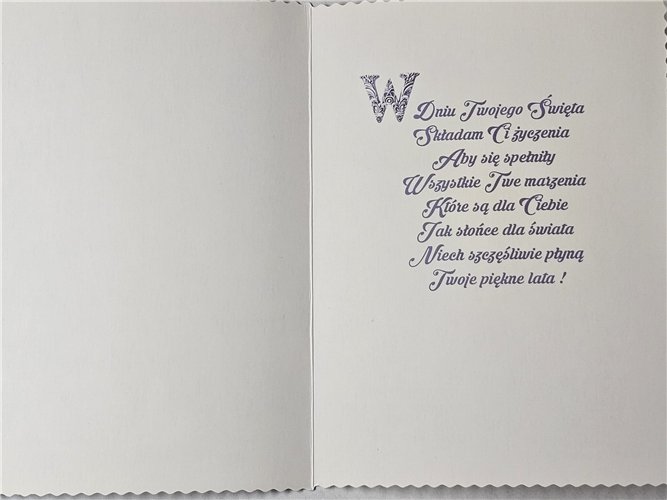 W Dniu Twojego Święta
Składam Ci życzenia
Aby się spełniły
Wszystkie Twe marzenia
Które są dla Ciebie
Jak słońce dla świata
Niech szczęśliwie płyną
Twoje piękne lata !